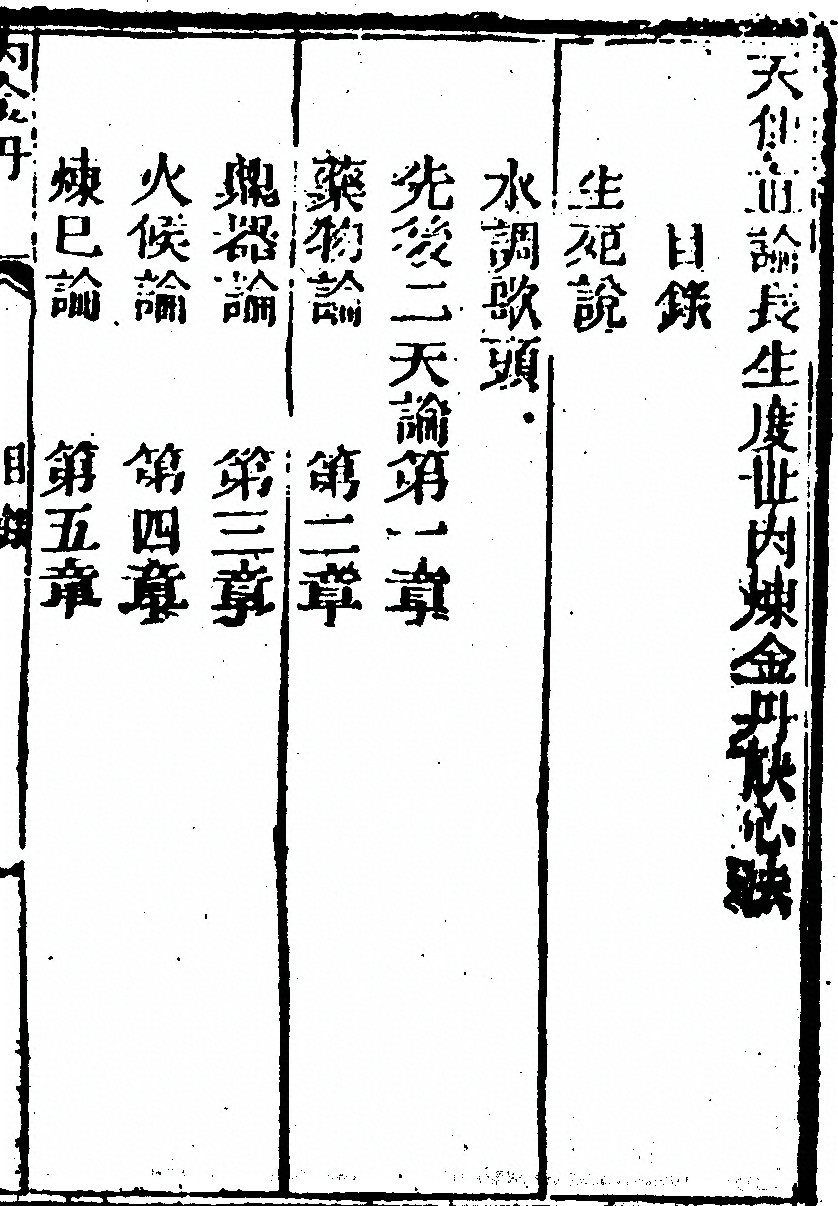 天仙直論長生度世內煉金丹訣心法
目錄
生死說
水調歌頭
先後二天論第一章
藥物論 第二章
鼎器論 第三章
火候論 第四章
煉己論 第五章
內金丹 目錄 一